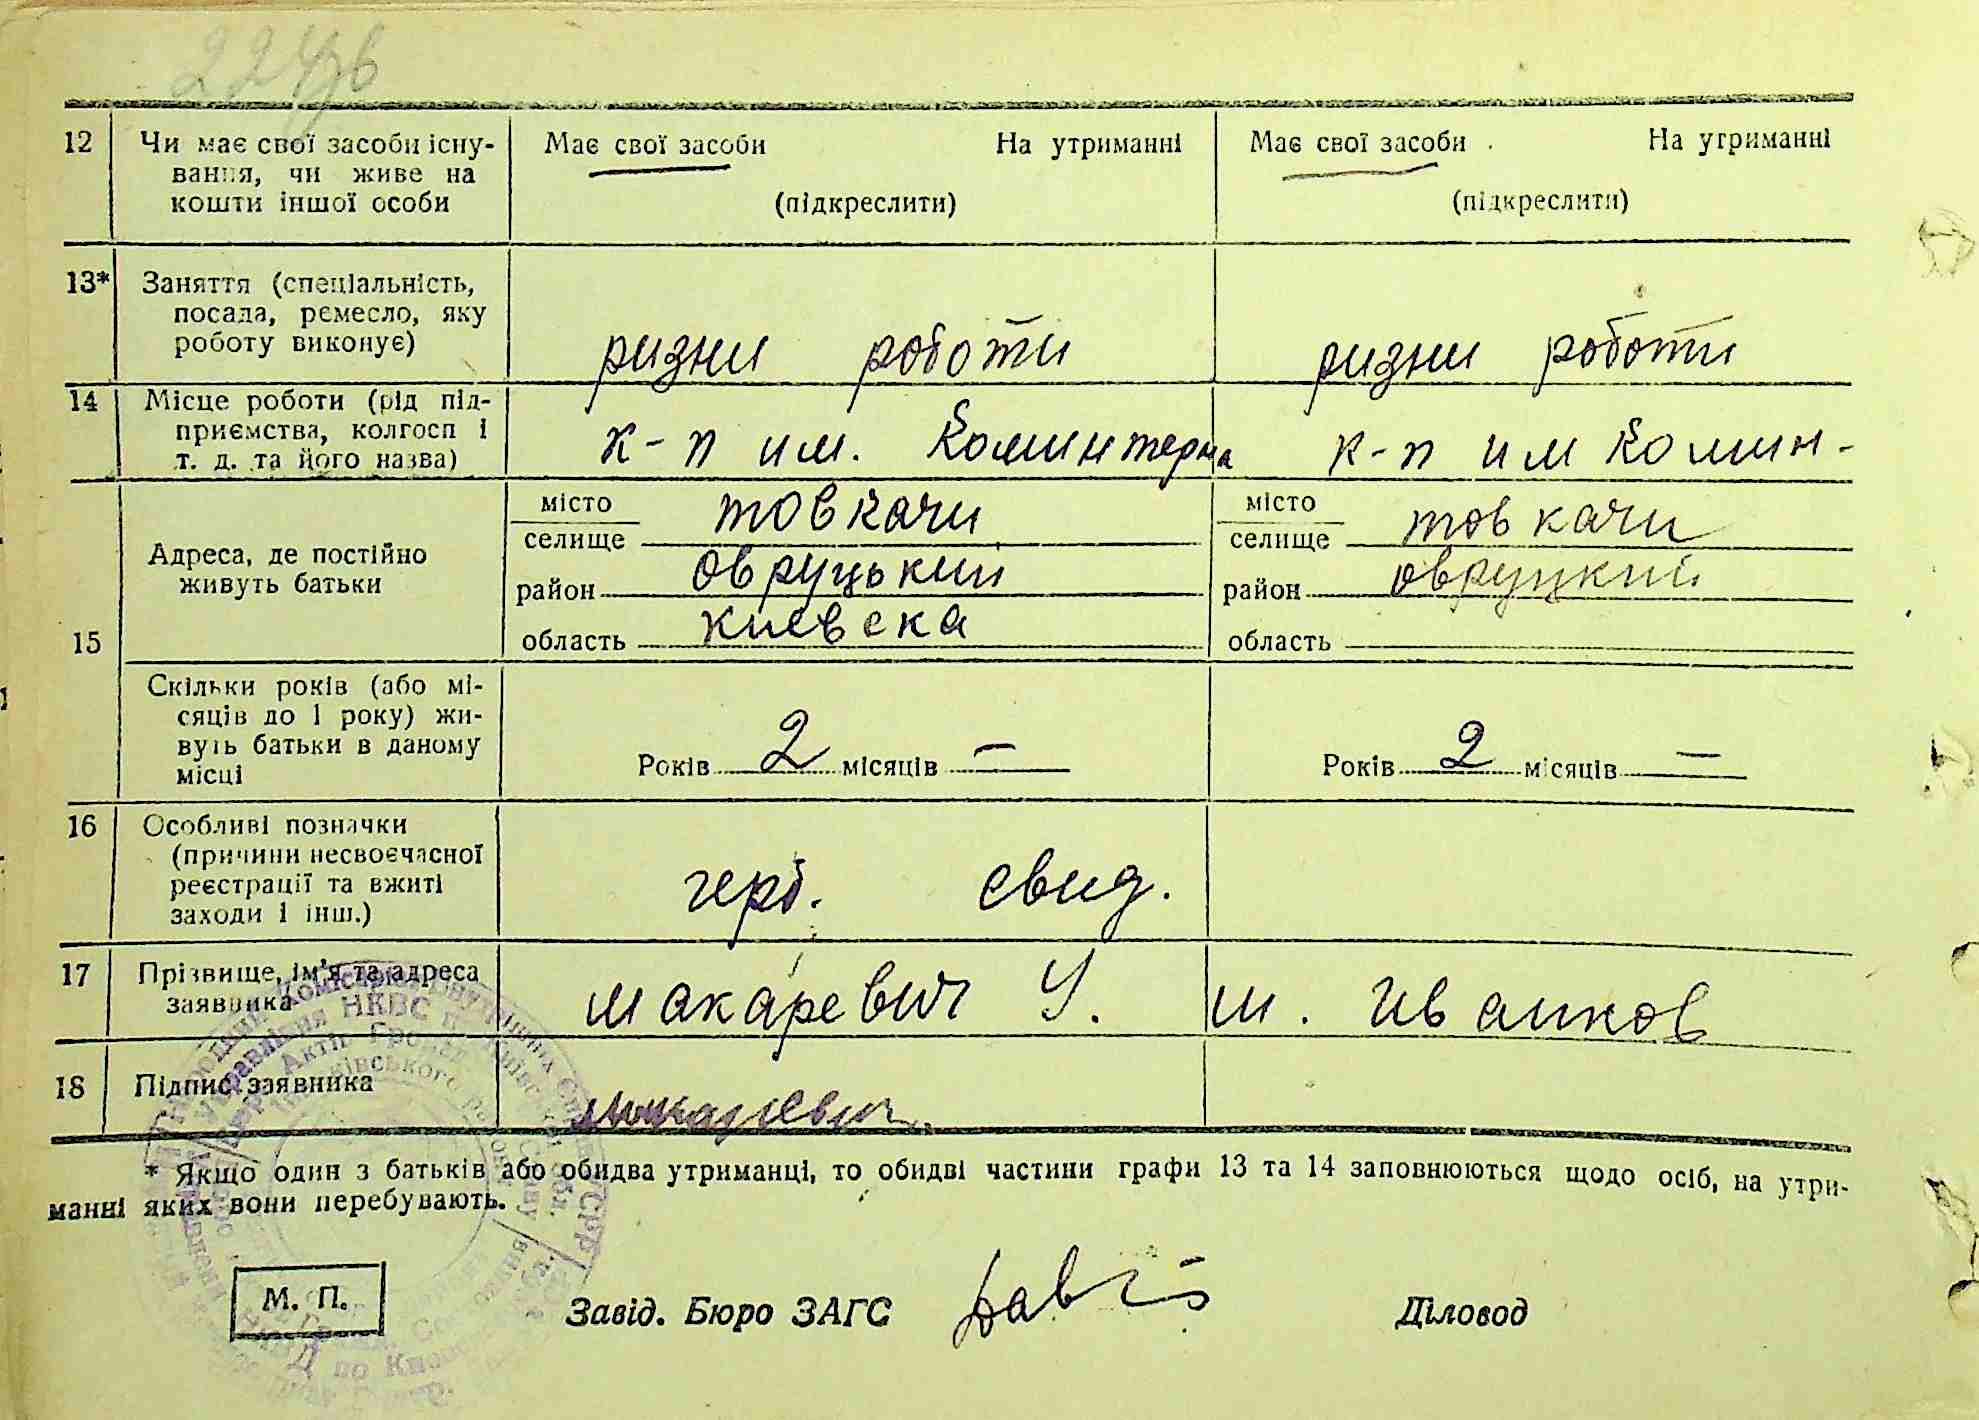 224зв
12 Чи має свої засоби існу- Має свої засоби На утриманні Має свої засоби На утриманні
вання, чи живе на
кошти іншої особи (підкреслити) (підкреслити)
13* Заняття (спеціальність,
посада, ремесло, яку
роботу виконує) ризни роботи ризни роботи
14 Місце роботи (рід під-
приємства, колгосп і
т. д. та його назва) к-п им. Коминтерна к-п им Комин-
15 Адреса, де постійно
живуть батьки
місто місто
селище товкачи селище товкачи
район овруцький район овруцкий
область киевска область
Скільки років (або мі-
сяців до 1 року) жи-
вуть батьки в даному
місці
Років 2 місяців — Років 2 місяців —
16 Особливі позначки
(причини несвоєчасної
реєстрації та вжиті
заходи і інш.) герб. свид.
17 Прізвище, ім'я та адреса
заявника макаревич У. ш. Иванков
18 Підпис заявника макаревич
* Якщо один з батьків або обидва утриманці, то обидві частини графи 13 та 14 заповнюються щодо осіб, на утри-
манні яких вони перебувають.
М. П. Завід. Бюро ЗАГС Діловод